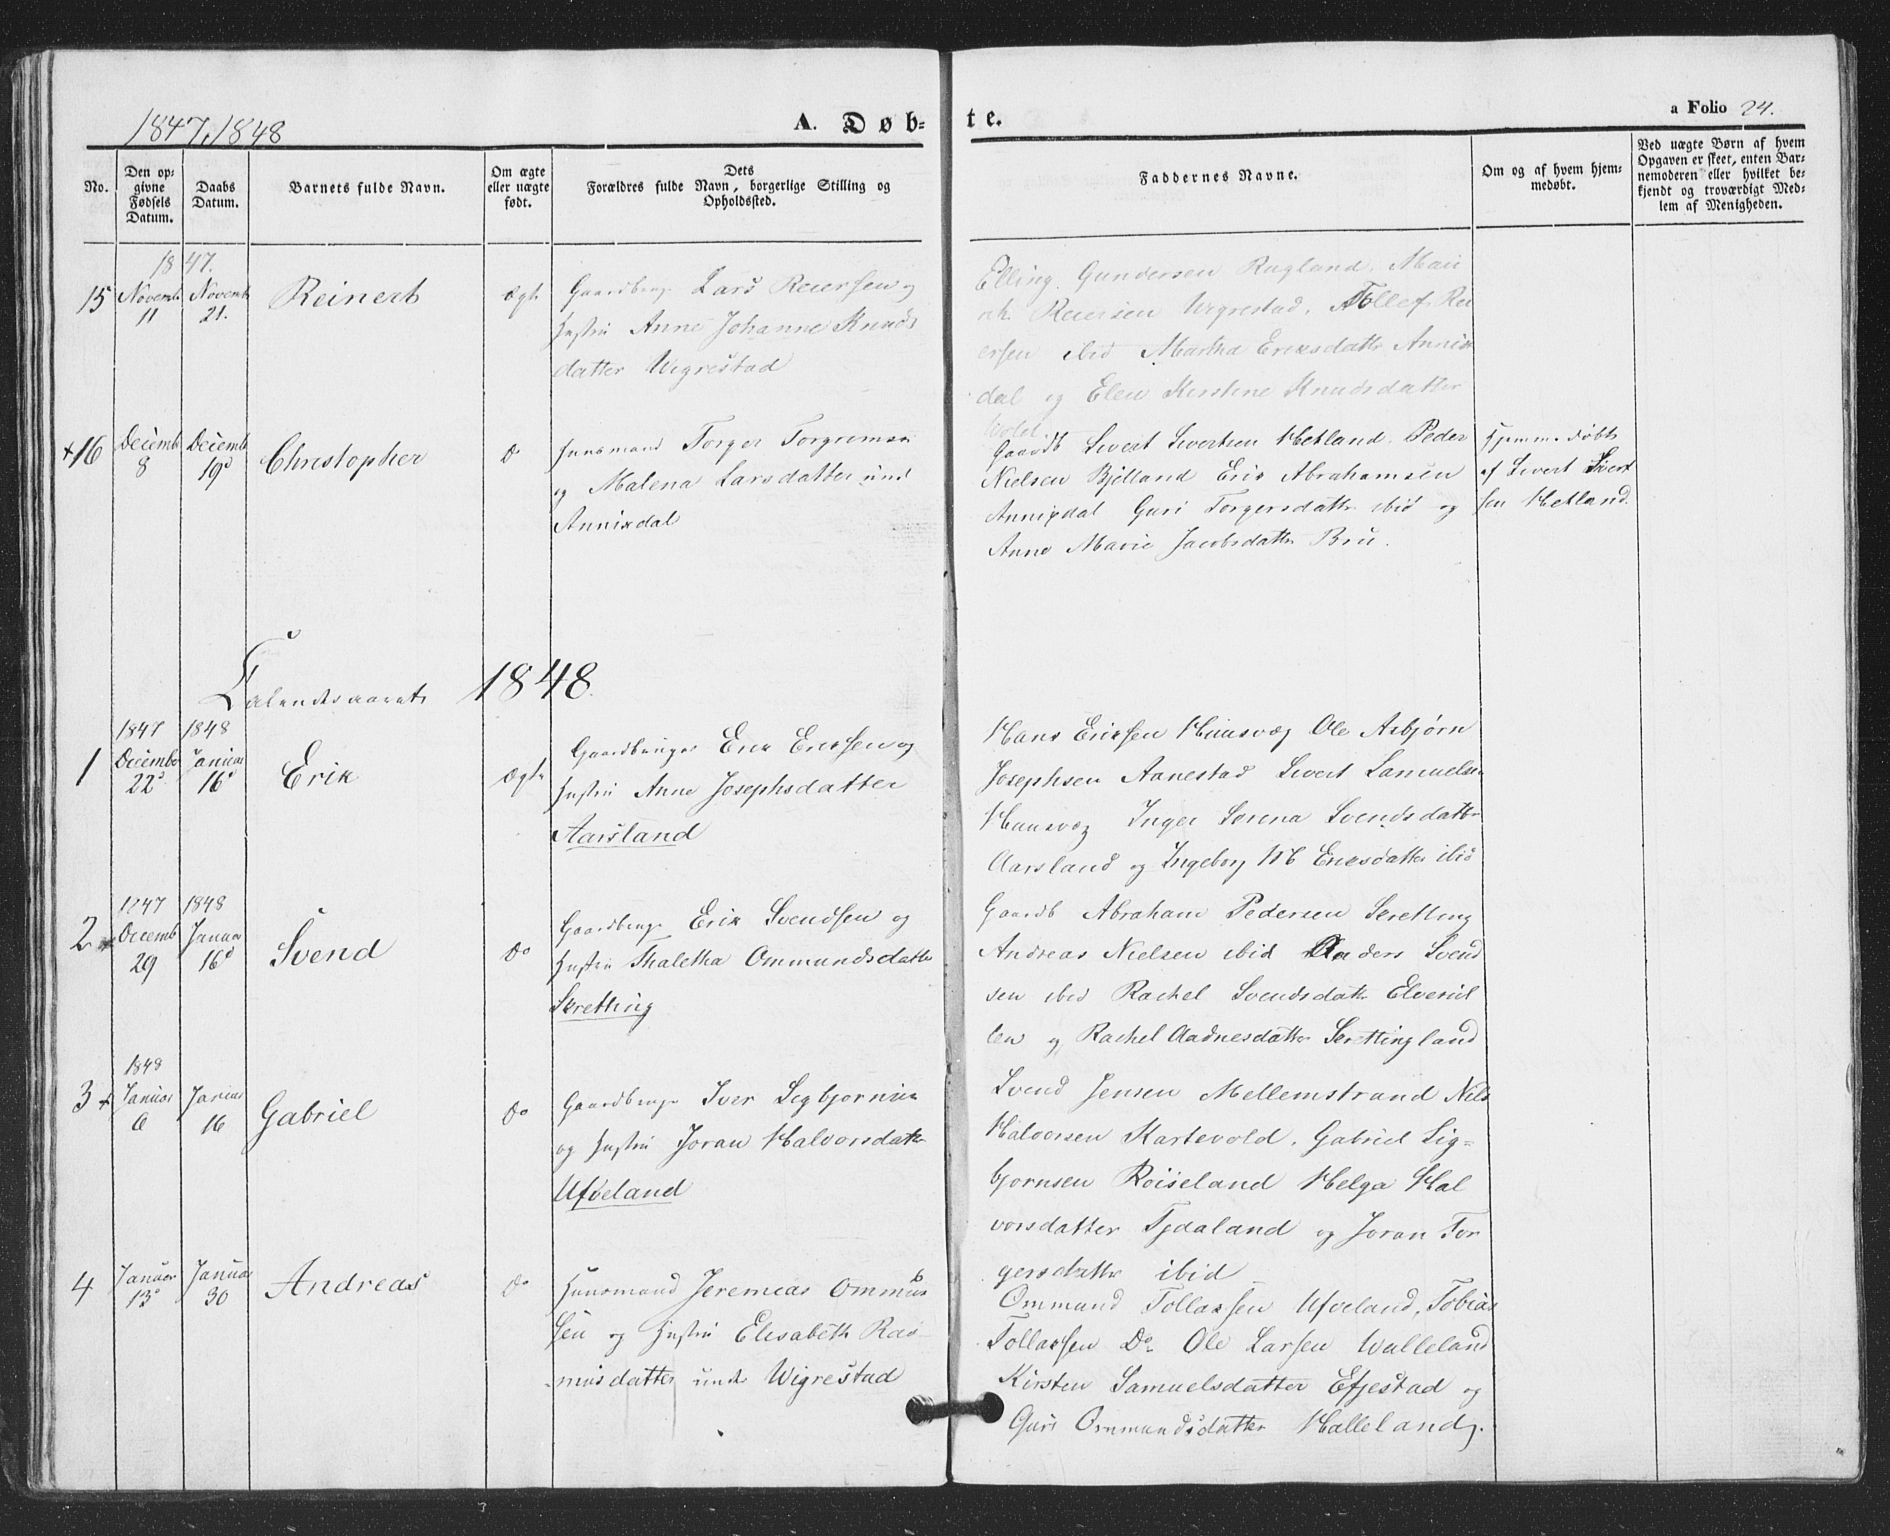 1847, 1848
A. Døb-
te.
a Folio 24.
No.
Den op-
givne
Fødsels
Datum.
Daabs
Datum.
Barnets fulde Navn.
Om ægte
eller uægte
født.
Dets
Forældres fulde Navn, borgerlige Stilling og
Opholdssted.
Faddernes Navne.
Om og af hvem hjem-
medøbt.
Ved uægte Børn af hvem
Opgaven er skeet, enten Bar-
nemoderen eller hvilket be-
kjendt og troværdigt Med-
lem af Menigheden.
1847.
15
Novemb
11
Novemb
21.
Reinert
Ægte
Gaardbrug Lars Reiersen og
Hustru Anne Johanne Knuds
datter Wigrestad
Elling Gundersen Rugland.
Reiersen Wigrestad, Tollef Rei
ersen ibid Martha Eriksdattr Annix
dal og Elen Kirstine Knudsdatter
+16
Decemb
8
Decemb
19d
Christopher
do
Huusmand Torger Torgrimsen
og Malena Larsdatter und
Annixdal
Gaardb Sivert Sivertsen Hetland. Peder
Nielsen Bjelland Eric Abrahamsen
Annixdal Guri Torgersdattr ibid og
Anne Marie Jacobsdattr Bru.
Hjemmedøbt
af Sivert Sivert
sen Hetland.
Calendersaaret 1848.
1847
1848
1
Decembr
22d
Januar
16d
Erik
Ægte
Gaardbruger Erik Eriksen og
Hustru Anne Josephsdatter
Aarsland
Hans Eriksen Huusvæg Ole Asbjørn
Josephsen Aanestad Sivert Samuelsen
Huusvæg Inger Serena Svendsdattr
Aarsland og Ingeborg M Eriksdattr ibid
1847
1848
2
Decemb
29
Januar
16d
Svend
do
Gaardbruge Erik Svendsen og
Hustru Thaletha Ommundsdattr
Skretting
Gaardb Abraham Pedersen Scretting
Andreas Nielsen ibid Anders Svend
sen ibid Rachel Svendsdattr
og Rachel Aadnesdattr Screttingland
1848
3+
Januar
6
Januar
16
Gabriel
do
Gaardbruge Iver Segbjørnsen
og Hustru Joran Halvorsdattr
Ufveland
Svend Jensen Mellemstrand Nils
Halvorsen Kartevold, Gabriel Sig-
bjørnsen Røiseland Helga Hal
vorsdatter Fjdaland og Joran Tor
gersdattr ibid
4
Januar
13d
Januar
30
Andreas
do
Huusmand Jeremias Ommunds
sen og Hustru Elisabeth Ras-
musdatter under Wigrestad
Ommund Tollassen Ufveland, Tobias
Tollassen Do Ole Larsen Walleland
Kirsten Samuelsdatter Efjestad og
Guri Ommundsdatter Halleland.